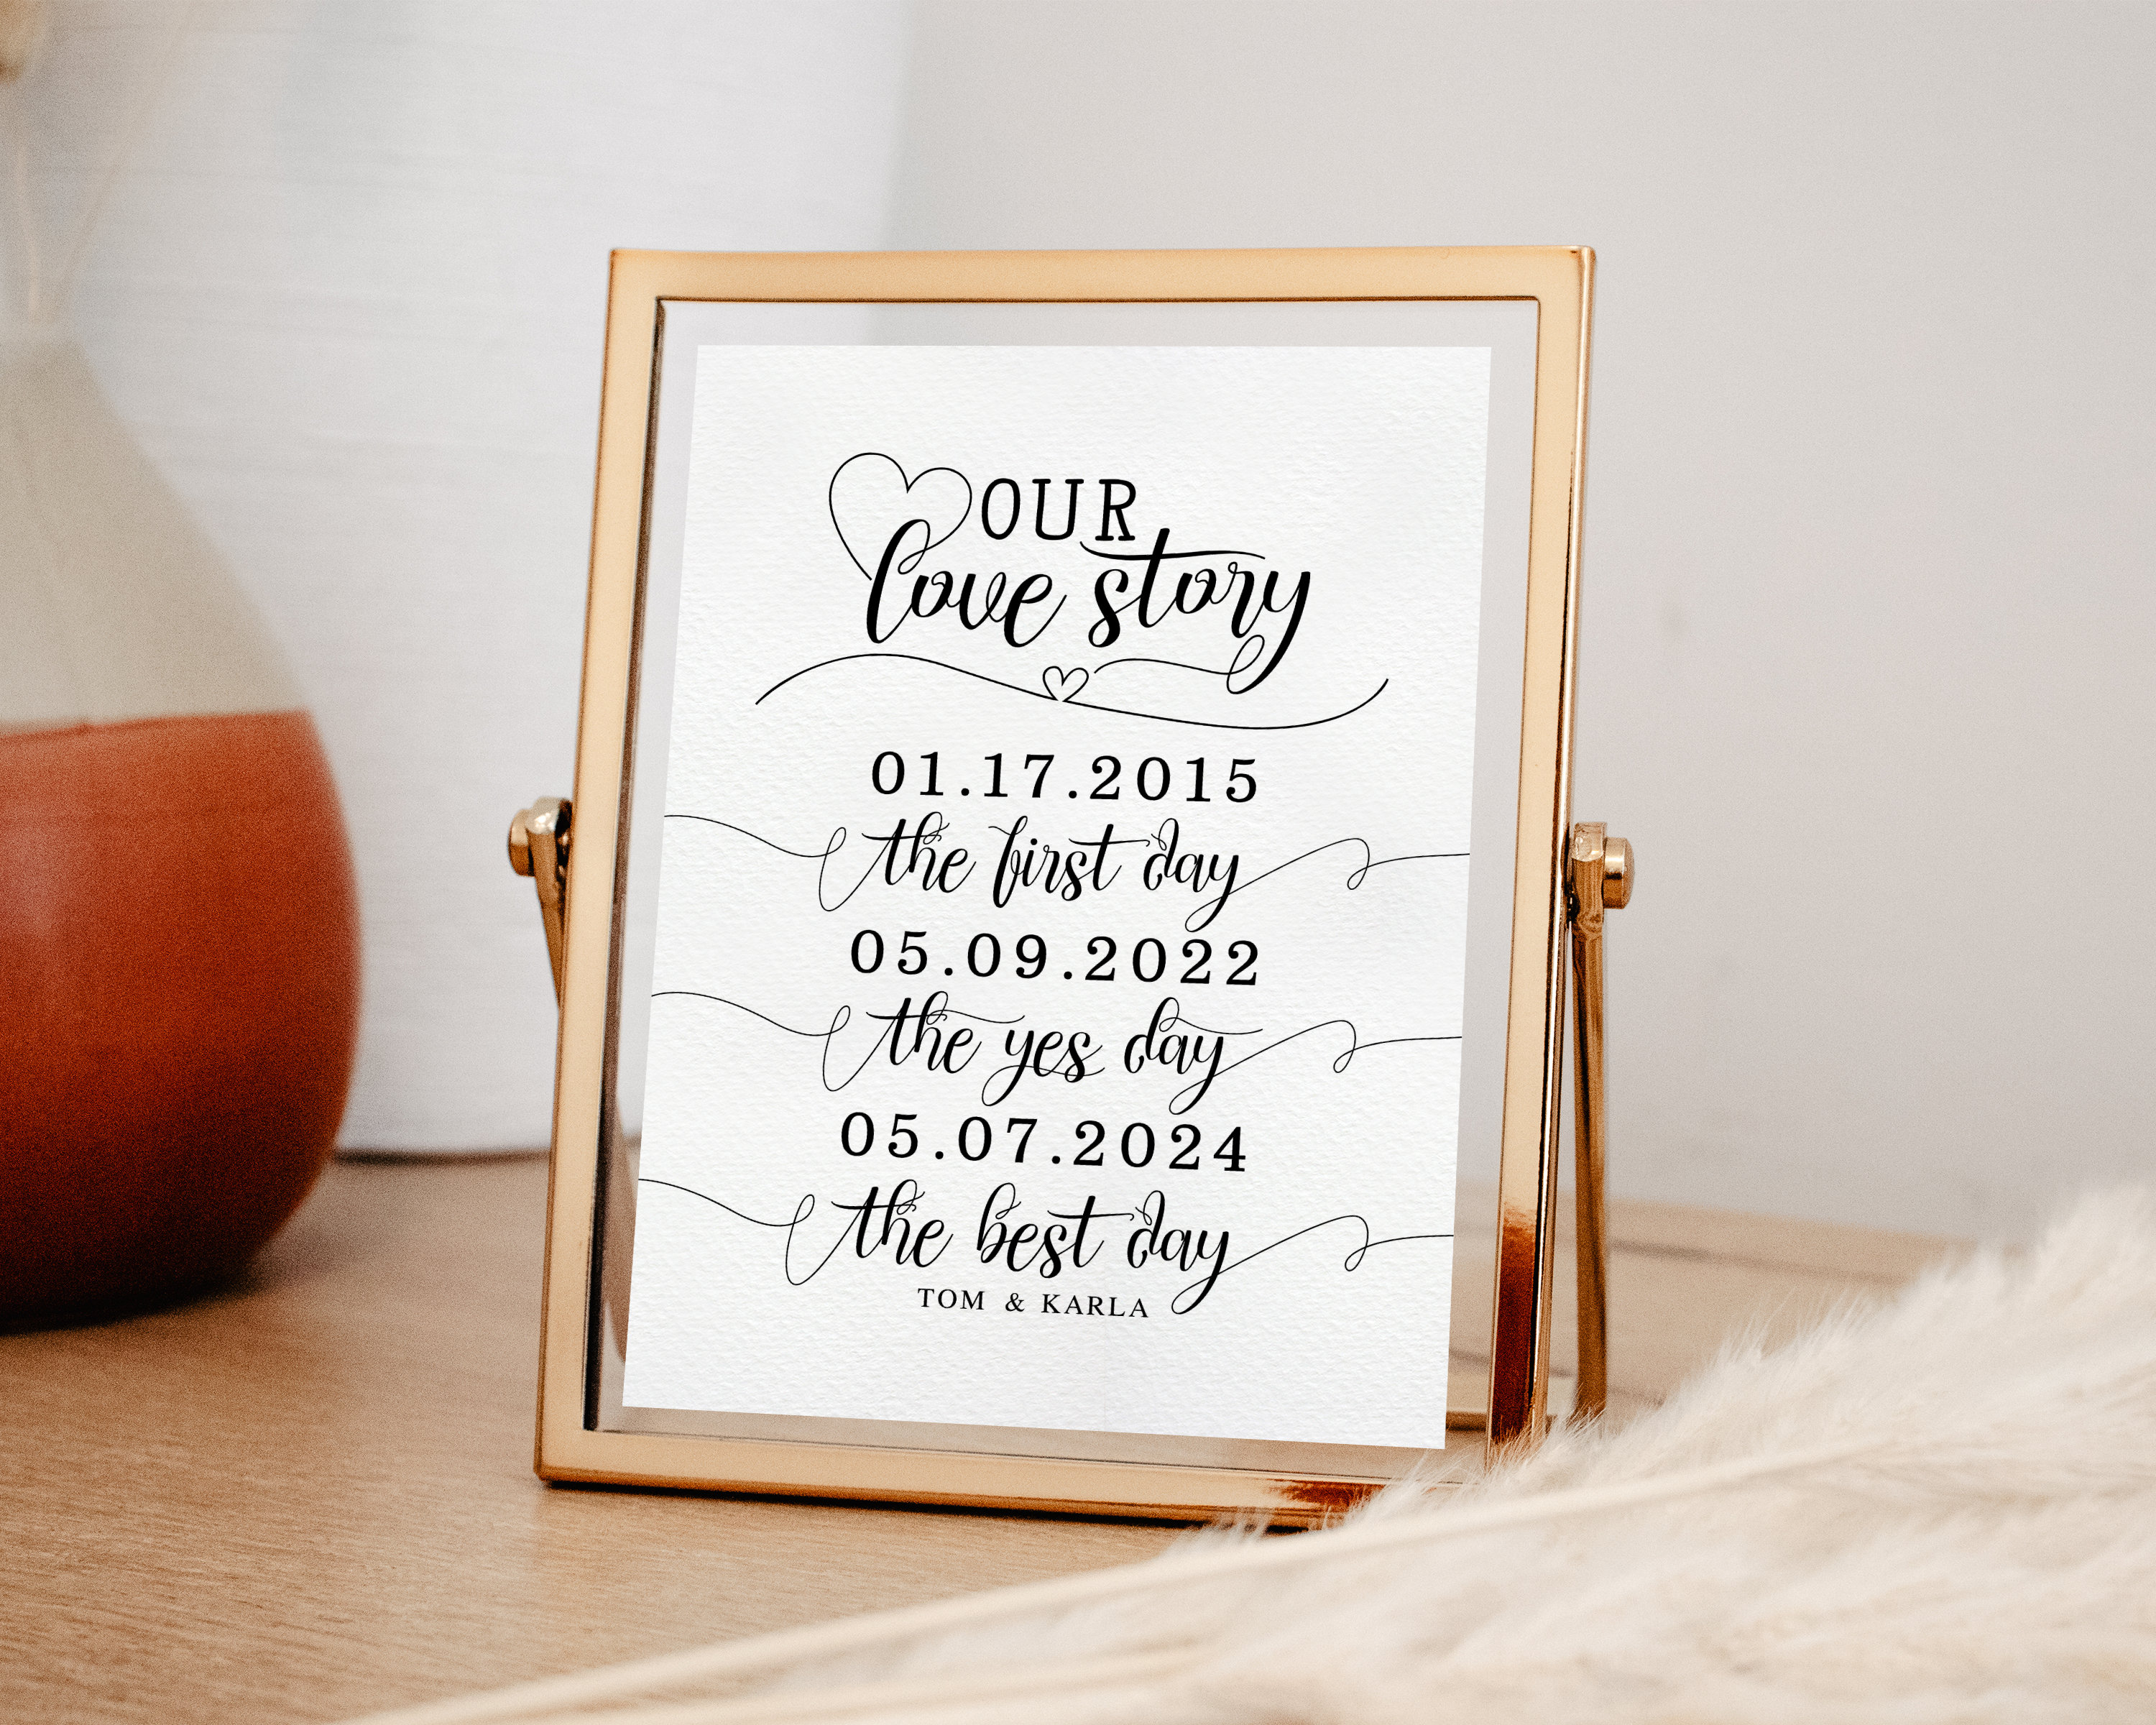 OUR
love story
01.17.2015
the first day
05.09.2022
the yes day
05.07.2024
the best day
TOM & KARLA